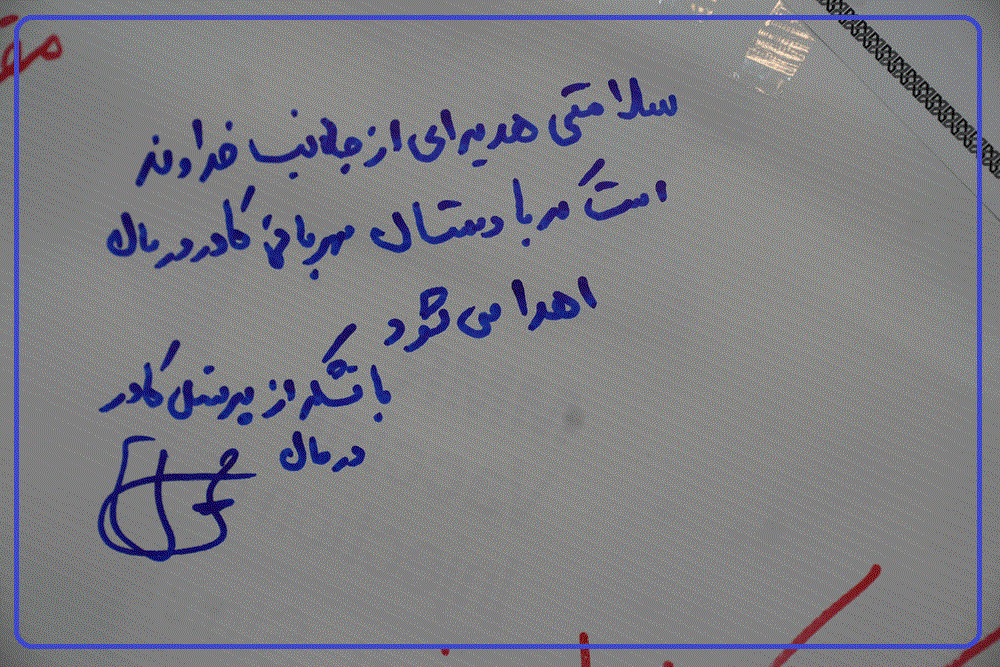 سلامتی هدیه‌ای از جانب خداوند
است که با دستان مهربان کادر درمان
اهدا می شود
با تشکر از پرسنل کادر
درمان